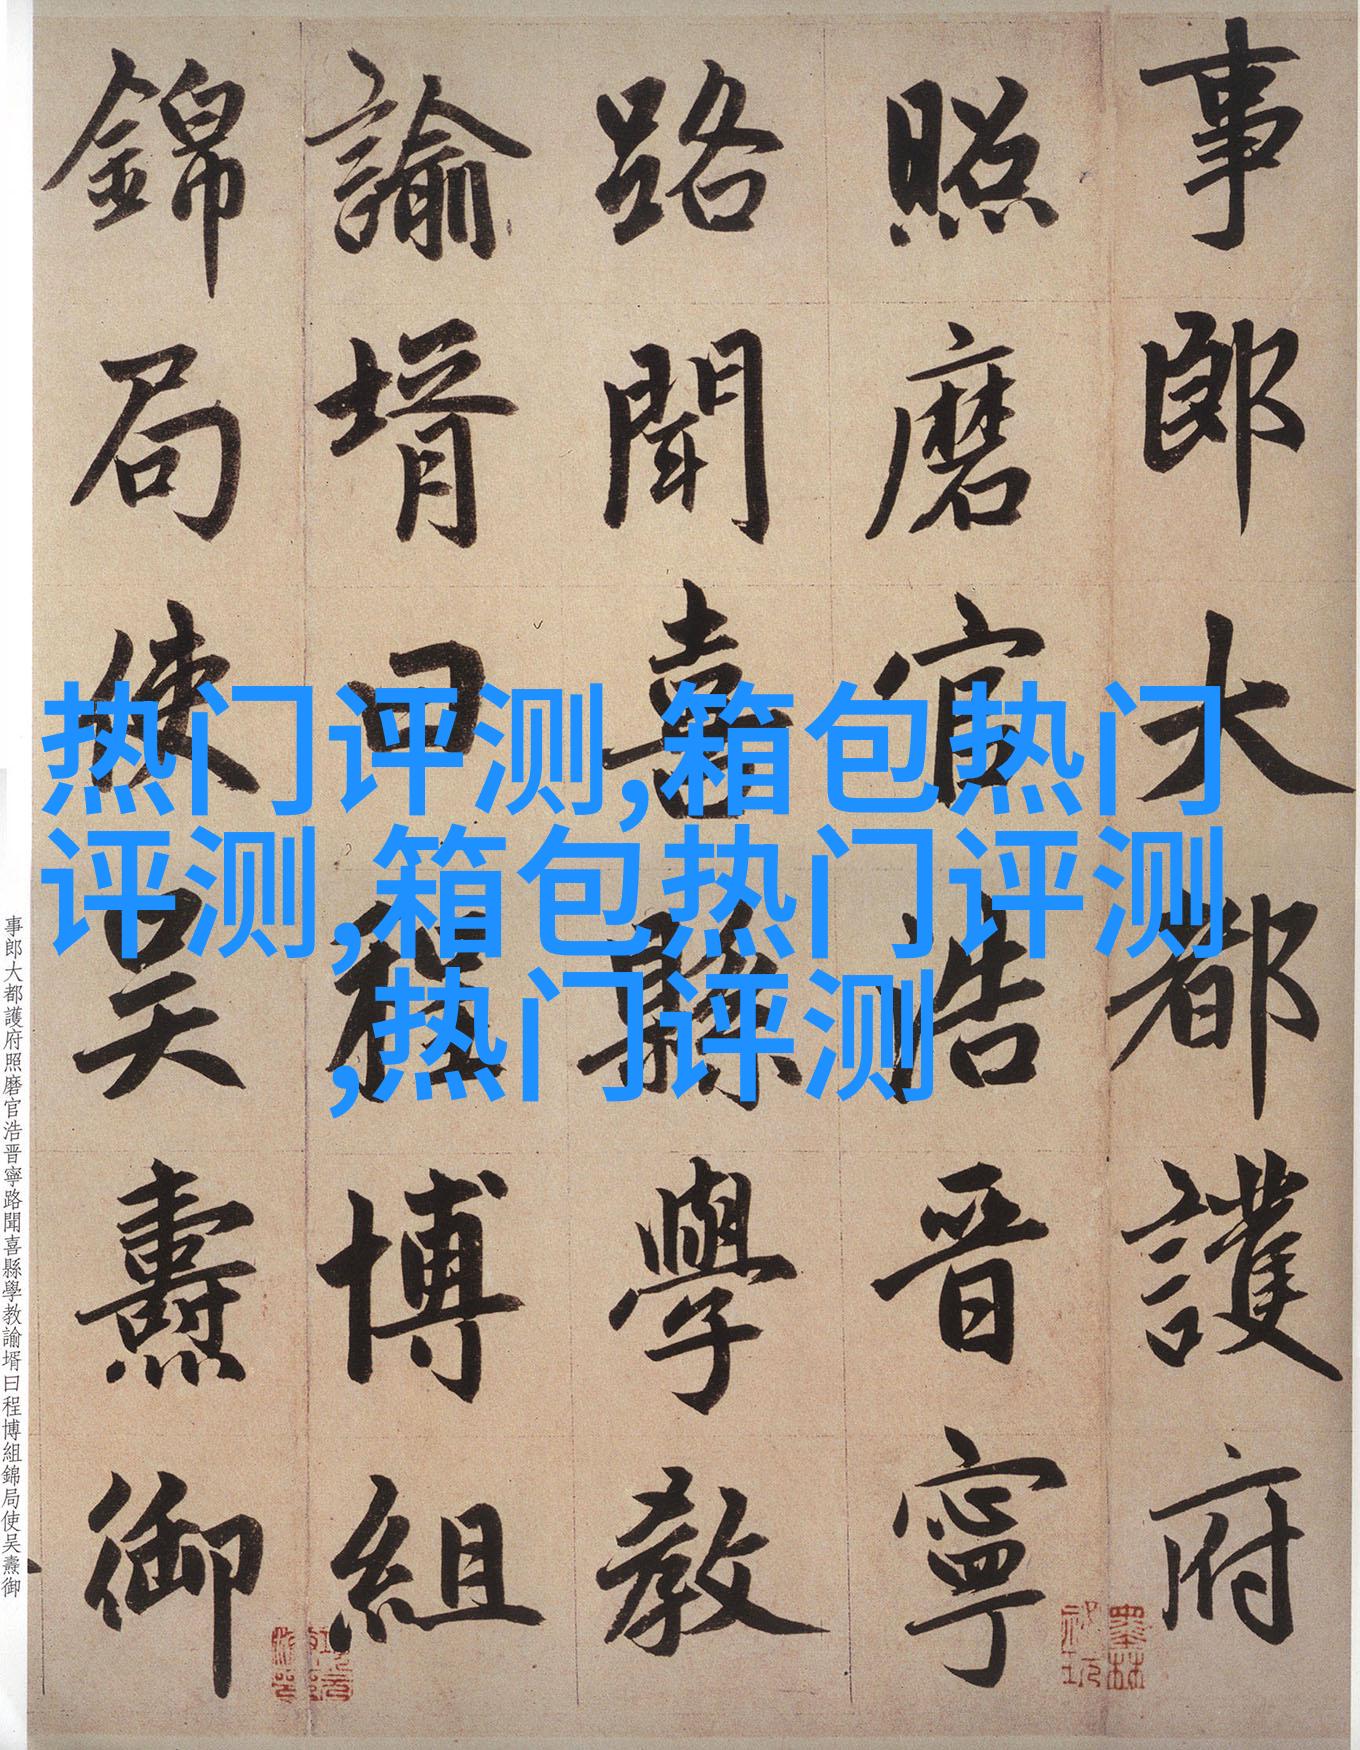 事郎大都護府
照磨官浩晋寧
路聞喜縣學教
諭壻曰程博組
錦局使吴燾御
热门评测,箱包热门
评测,箱包热门评测
,热门评测
事郎大都護府照磨官浩晋寧路聞喜縣學教諭壻曰程博組錦局使吴燾御